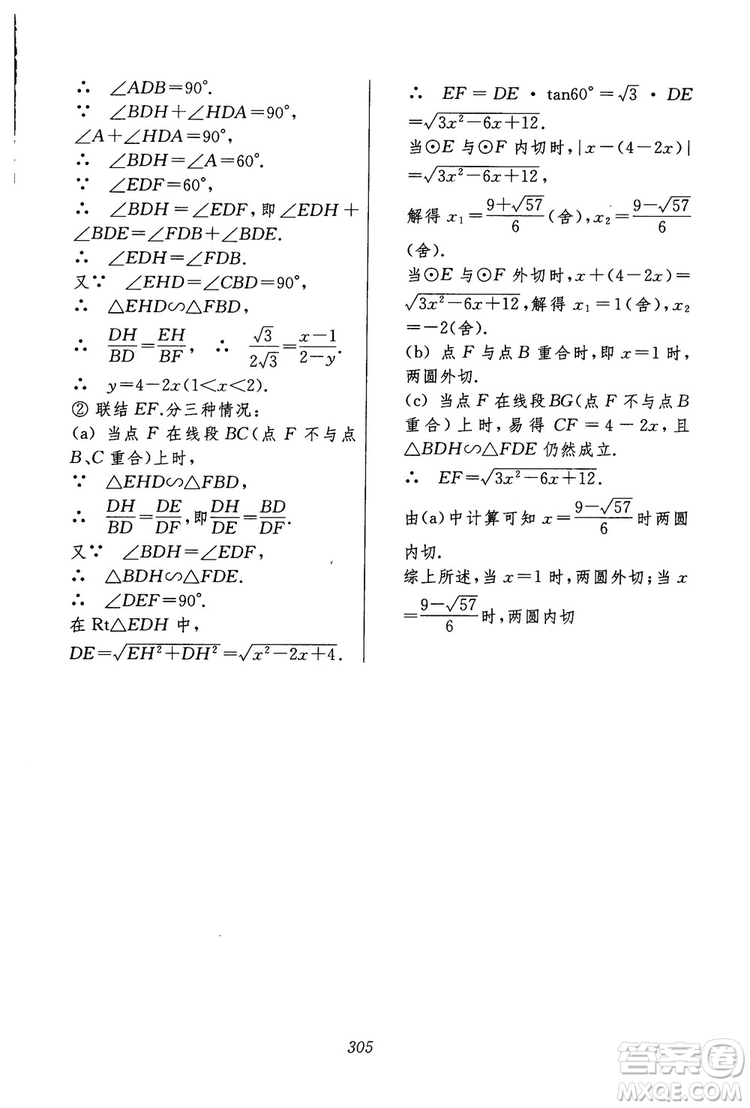 ∴ ∠ADB=90°.
∵ ∠BDH+∠HDA=90°,
∠A+∠HDA=90°,
∴ ∠BDH=∠A=60°.
∵ ∠EDF=60°,
∴ ∠BDH=∠EDF,即∠EDH+
∠BDE=∠FDB+∠BDE.
∴ ∠EDH=∠FDB.
又∵ ∠EHD=∠CBD=90°,
∴ △EHD∽△FBD,
∴ DH/BD=EH/BF, ∴ √3/2√3=x-1/2-y.
∴ y=4-2x(1<x<2).
② 联结 EF.分三种情况:
(a) 当点 F 在线段 BC(点 F 不与点
B、C 重合)上时,
∵ △EHD∽△FBD,
∴ DH/BD=DE/DF,即DH/DE=BD/DF.
又∵ ∠BDH=∠EDF,
∴ △BDH∽△FDE.
∴ ∠DEF=90°.
在 Rt△EDH 中,
DE=√(EH²+DH²)=√(x²-2x+4).
∴ EF=DE·tan60°=√3·DE
=√(3x²-6x+12).
当⊙E 与⊙F 内切时,|x-(4-2x)|
=√(3x²-6x+12),
解得 x₁=(9+√57)/6(舍),x₂=(9-√57)/6
(舍).
当⊙E 与⊙F 外切时,x+(4-2x)=
√(3x²-6x+12),解得 x₁=1(舍),x₂
=-2(舍).
(b) 点 F 与点 B 重合时,即 x=1 时,
两圆外切.
(c) 当点 F 在线段 BG(点 F 不与点 B
重合)上时,易得 CF=4-2x,且
△BDH∽△FDE 仍然成立.
∴ EF=√(3x²-6x+12).
由(a)中计算可知 x=(9-√57)/6 时两圆
内切.
综上所述,当 x=1 时,两圆外切;当 x
=(9-√57)/6时,两圆内切
305
答案圈
MXQE.COM